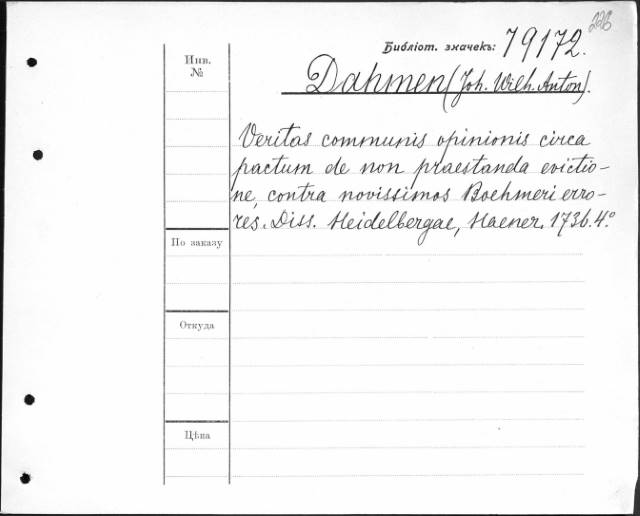 226
Библіот. значекъ: 79172.
Инв.
№
Dahmen (Joh. Wilh. Anton).
Veritas communis opinionis circa
pactum de non praestanda evictio-
ne, contra novissimos Boehmeri erro-
res. Diss. Heidelbergae, Haener. 1736. 4.°
По заказу
Откуда
Цѣна